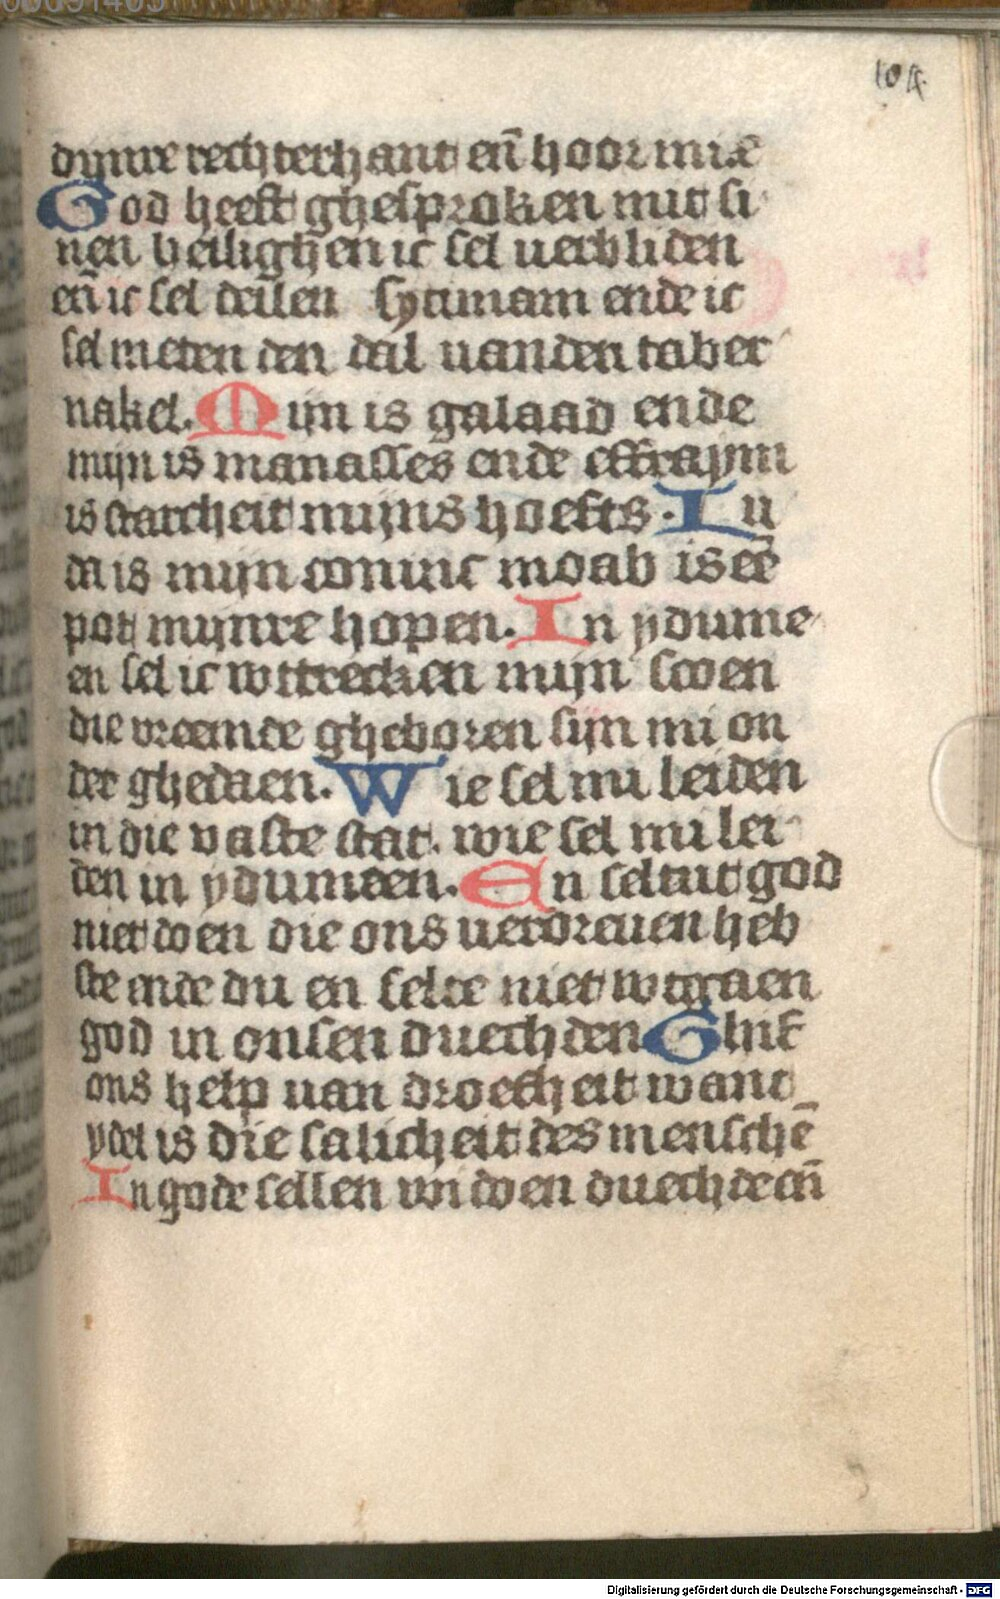 104
dijnre rechterhant en̄ hoor mi.
God heeft ghesproken mit si
nen heilighen ic sel verbliden
en̄ ic sel deilen sycimam ende ic
sel meten den dal vanden taber
nakel. Mijn is galaad ende
mijn is manasses ende effraym
is starcheit mijns hoefts. Iu
da is mijn coninc moab is eē
pot mijnre hopen. In ydume
en sel ic wttrecken mijn scoen
die vreemde gheboren sijn mi on
der ghedaen. Wie sel mi leiden
in die vaste stat. wie sel mi lei
den in ydumeen. En seltuut god
niet doen die ons verdreuen heb
ste ende du en selte niet wtgaen
god in onsen duechden Ghif
ons help van droefheit want
ydel is die salicheit des menschē
In gode sellen wi doen duechde en̄
Digitalisierung gefördert durch die Deutsche Forschungsgemeinschaft - DFG